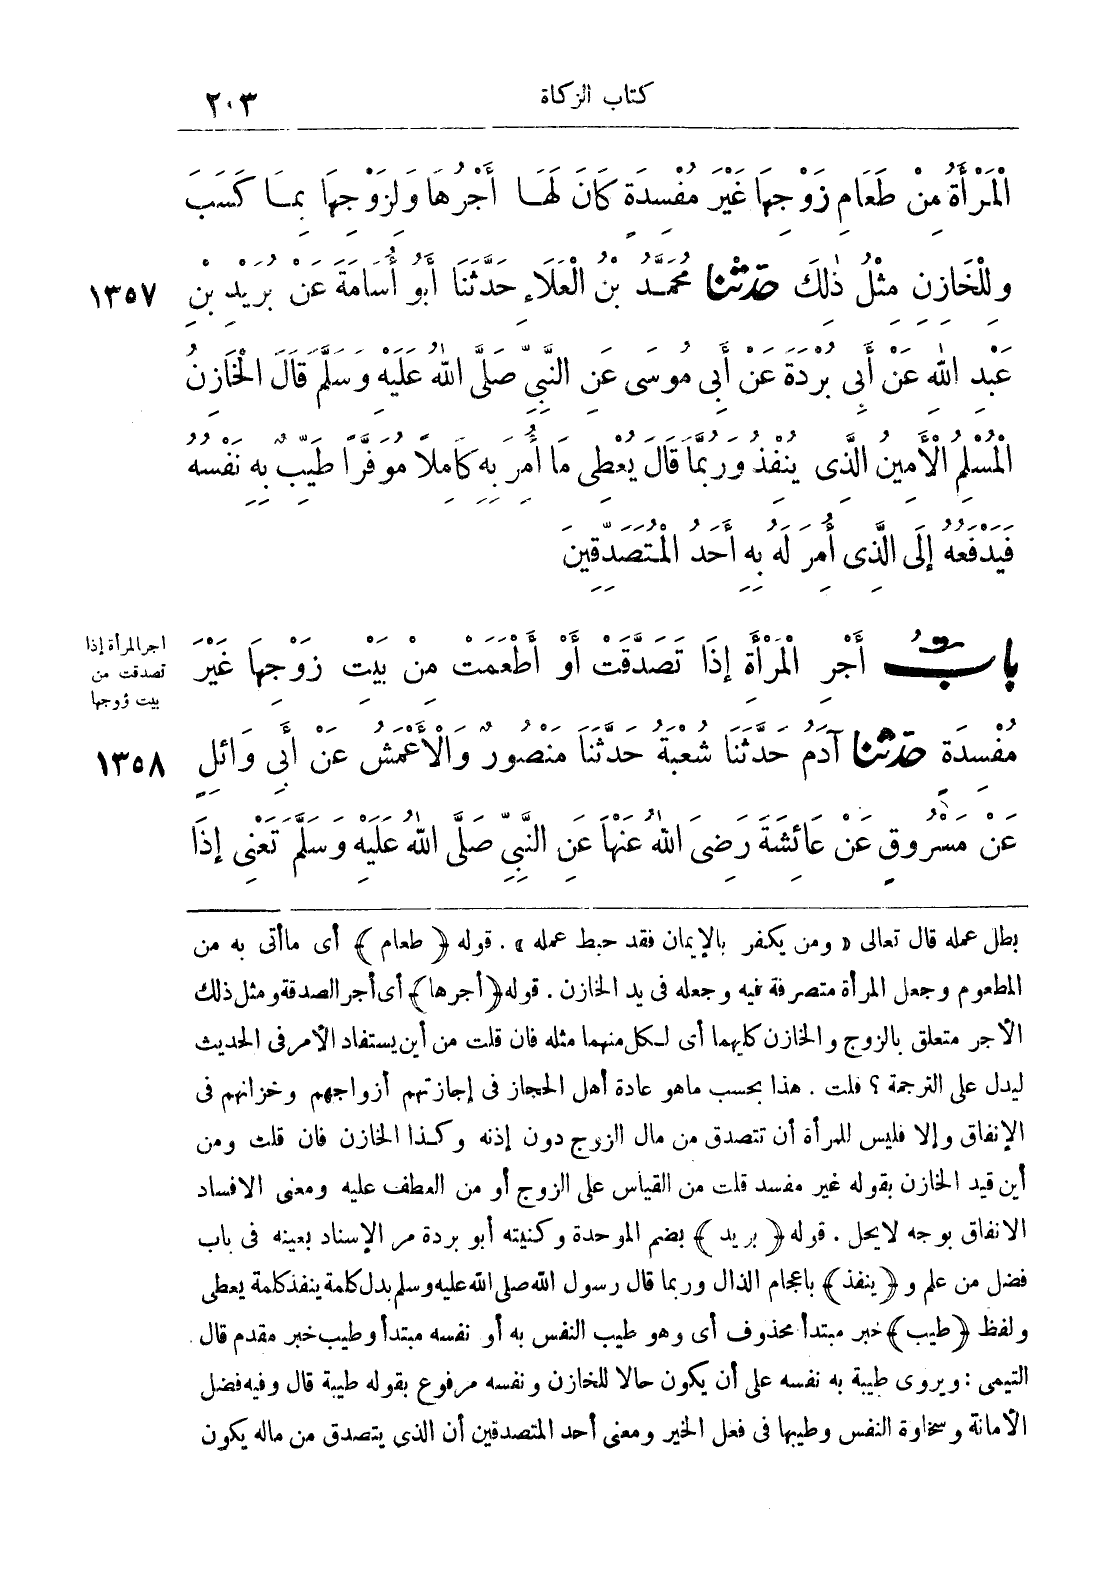 كتاب الزكاة
٢٠٣
الْمَرْأَةُ مِنْ طَعَامِ زَوْجِهَا غَيْرَ مُفْسِدَةٍ كَانَ لَهَا أَجْرُهَا وَلِزَوْجِهَا بِمَا كَسَبَ
وَلِلْخَازِنِ مِثْلُ ذٰلِكَ حَدَّثَنَا مُحَمَّدُ بْنُ الْعَلَاءِ حَدَّثَنَا أَبُو أُسَامَةَ عَنْ بُرَيْدِ بْنِ
١٣٥٧
عَبْدِ اللهِ عَنْ أَبِى بُرْدَةَ عَنْ أَبِى مُوسَى عَنِ النَّبِيِّ صَلَّى اللهُ عَلَيْهِ وَسَلَّمَ قَالَ الْخَازِنُ
الْمُسْلِمُ الْأَمِينُ الَّذِى يُنْفِذُ وَرُبَّمَا قَالَ يُعْطِى مَا أُمِرَ بِهِ كَامِلًا مُوَفَّرًا طَيِّبٌ بِهِ نَفْسُهُ
فَيَدْفَعُهُ إِلَى الَّذِى أُمِرَ لَهُ بِهِ أَحَدُ الْمُتَصَدِّقِينَ
بابُ أَجْرِ الْمَرْأَةِ إِذَا تَصَدَّقَتْ أَوْ أَطْعَمَتْ مِنْ بَيْتِ زَوْجِهَا غَيْرَ
اجر المرأة إذا
تصدقت من
بيت زوجها
مُفْسِدَةٍ حَدَّثَنَا آدَمُ حَدَّثَنَا شُعْبَةُ حَدَّثَنَا مَنْصُورٌ وَالْأَعْمَشُ عَنْ أَبِى وَائِلٍ
١٣٥٨
عَنْ مَسْرُوقٍ عَنْ عَائِشَةَ رَضِىَ اللهُ عَنْهَا عَنِ النَّبِيِّ صَلَّى اللهُ عَلَيْهِ وَسَلَّمَ تَعْنِى إِذَا
بطل عمله قال تعالى « ومن يكفر بالإيمان فقد حبط عمله » . قوله ﴿ طعام ﴾ أى ماأتى به من
المطعوم وجعل المرأة متصرفة فيه وجعله فى يد الخازن . قوله ﴿ أجرها ﴾ أى أجر الصدقة ومثل ذلك
الأجر متعلق بالزوج والخازن كليهما أى لكل منهما مثله فان قلت من أين يستفاد الأمر فى الحديث
ليدل على الترجمة ؟ قلت . هذا بحسب ماهو عادة أهل الحجاز فى إجازتهم أزواجهم وخزانهم فى
الإنفاق وإلا فليس للمرأة أن تتصدق من مال الزوج دون إذنه وكذا الخازن فان قلت ومن
أين قيد الخازن بقوله غير مفسد قلت من القياس على الزوج أو من العطف عليه ومعنى الافساد
الانفاق بوجه لايحل . قوله ﴿ بريد ﴾ بضم الموحدة وكنيته أبو بردة مر الإسناد بعينه فى باب
فضل من علم و ﴿ ينفذ ﴾ باعجام الذال وربما قال رسول الله صلى الله عليه وسلم بدل كلمة ينفذ كلمة يعطى
ولفظ ﴿ طيب ﴾ خبر مبتدأ محذوف أى وهو طيب النفس به أو نفسه مبتدأ وطيب خبر مقدم قال .
التيمى : ويروى طيبة به نفسه على أن يكون حالا للخازن ونفسه مرفوع بقوله طيبة قال وفيه فضل
الأمانة وسخاوة النفس وطيبها فى فعل الخير ومعنى أحد المتصدقين أن الذى يتصدق من ماله يكون